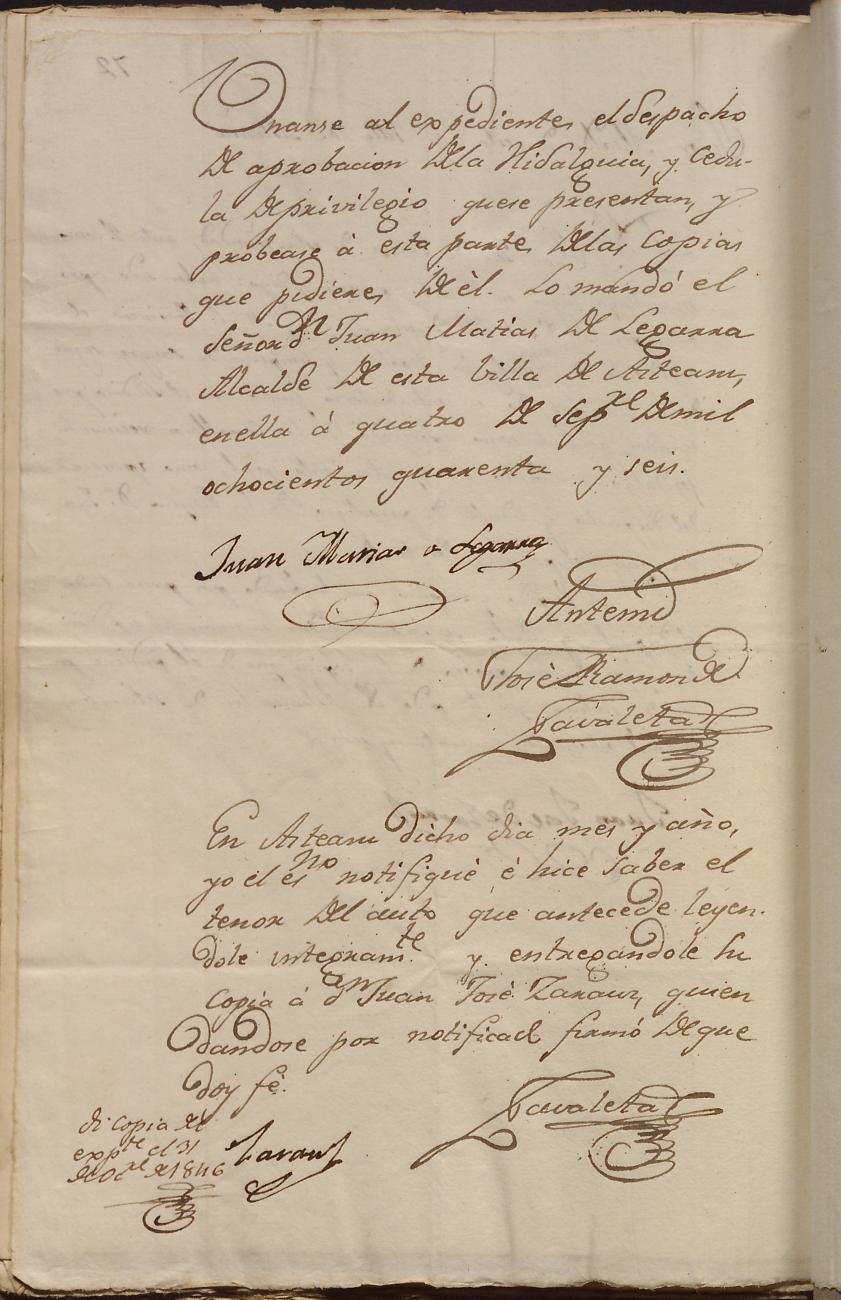 Unanse al expediente, el despacho
de aprobacion dela Hidalguia, y cedu-
la deprivilegio quese presentan, y
probease à esta parte delas copias
que pidiere, de èl. Lo mandó el
Señor Dn Juan Matias de Legarra
Alcalde de esta Villa de Asteasu,
enella à quatro de Sepre demil
ochocientos quarenta y seis.
Juan Matias de Legarra
Antemi
Josè Ramon de
Zavaleta
En Asteasu dicho dia mes y año,
yo el esno notifiquè è hice saber el
tenor del auto que antecede leyen-
dole integramte y entregandole su
copia à dn Juan Josè Zarauz, quien
dandose por notificado firmó deque
doy fè.
Zavaleta
Zarauz
di copia del
expte el 31
de Ore de 1846
72